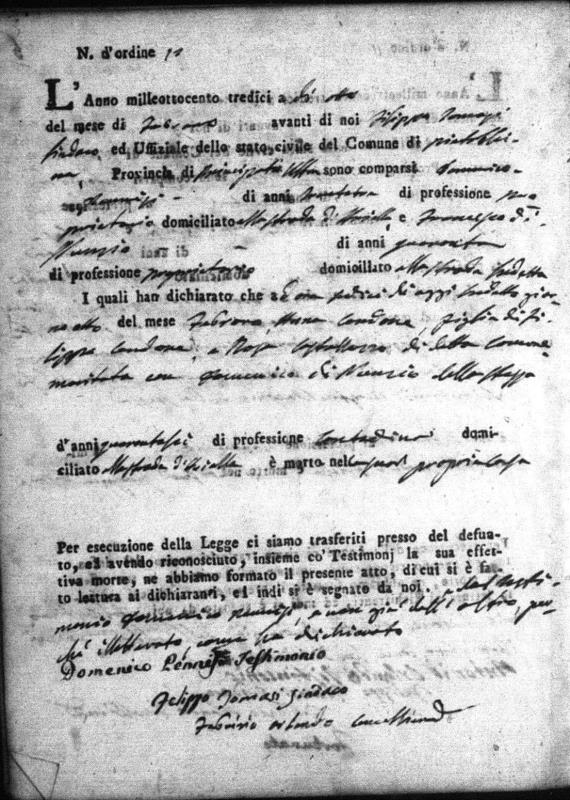 N. d'ordine
L'Anno milleottocento tredici a dì otto
del mese di Febraro avanti di noi Filippo Tomasi
Sindaco ed Uffiziale dello stato civile del Comune di
Provincia di Principato Ultra sono comparsi Domenico
di anni di professione pro
prietario domiciliato alla strada e Francesco di
Nunzio di anni quaranta
di professione proprietario domiciliato alla strada sudetta
I quali han dichiarato che ad ore sedici di oggi sudetto gior
no otto del mese Febraro Anna Cardone, figlia di Fi
lippo Cardone, e Rosa di detto Comune
maritata con Domenico di Nunzio dello stesso
d'anni quarantasei di professione contadina domi-
ciliato alla strada è morto nella sua propria casa
Per esecuzione della Legge ci siamo trasferiti presso del defun-
to, ed avendo riconosciuto, insieme co' Testimonj la sua effet-
tiva morte, ne abbiamo formato il presente atto, di cui si è fat-
to lettura ai dichiaranti, ed indi si è segnato da noi. e dal testi-
monio Domenico e non già dall'altro, per
ché illetterato come ha dichiarato
Domenico Testimonio
Felippo Tomasi Sindaco
Fabrizio Orlando Cancelliere